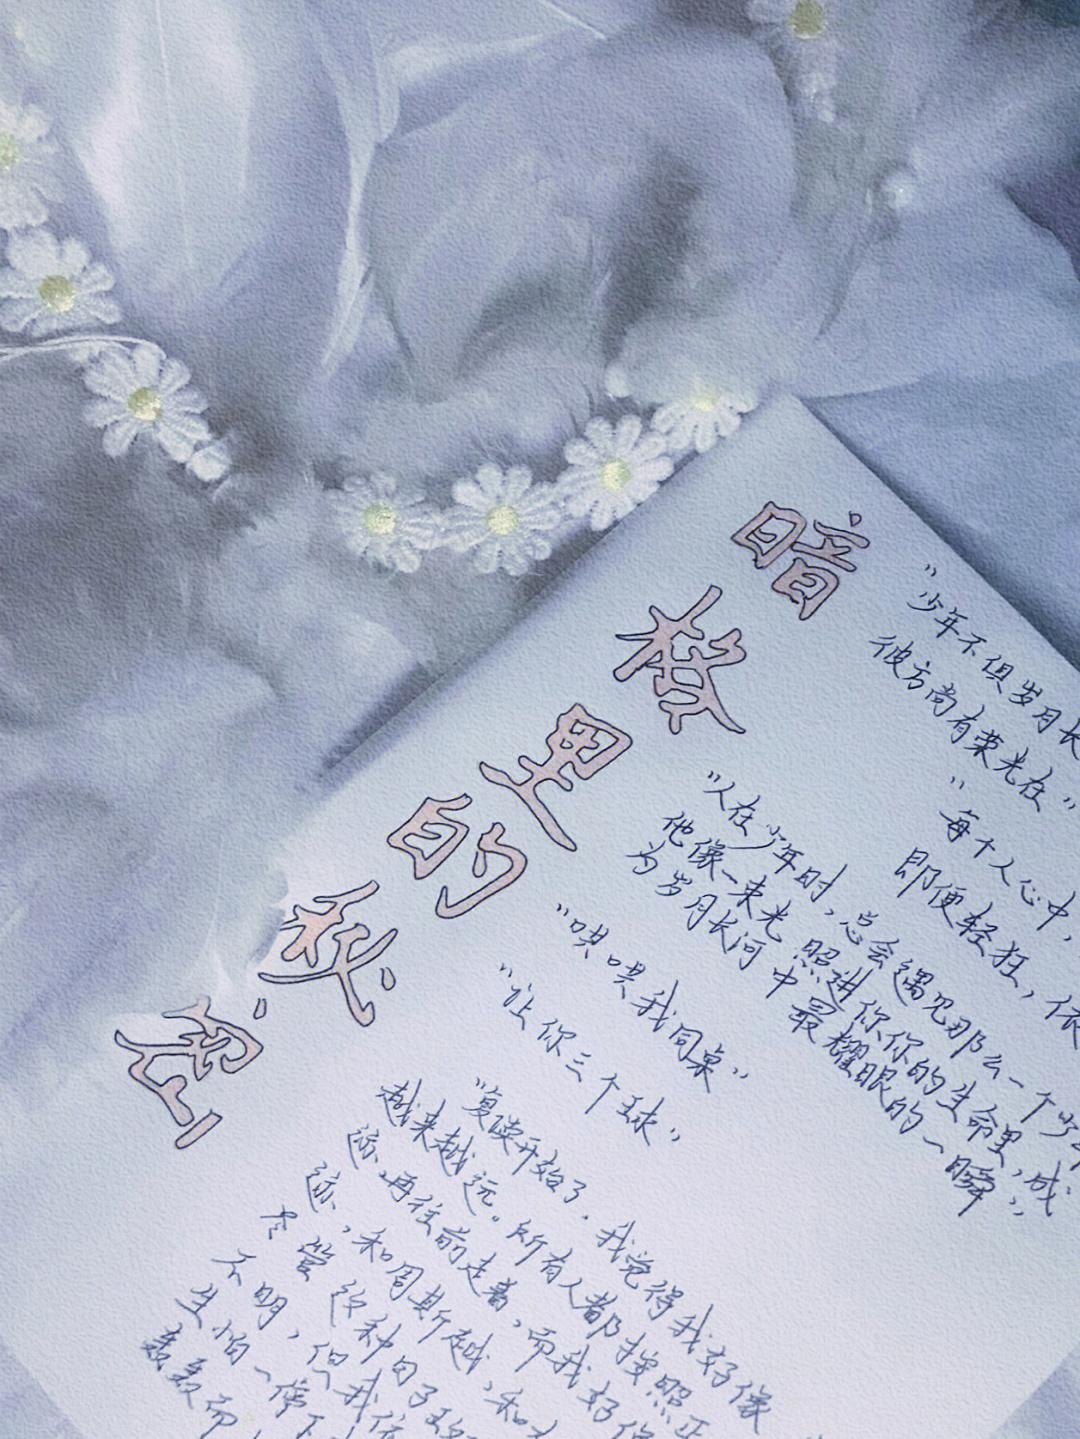 暗格里的秘密
"少年不惧岁月长
彼方尚有荣光在"
"每个人心中,
即便轻狂,依
"人在少年时,总会遇见那么一个少年
他像一束光 照进你你的生命里,成
为岁月长河中最耀眼的一瞬"
"哄哄我同桌"
"让你三个球"
"复读开始了。我觉得我好像
越来越远。所有人都按照正
迹,再往前走着,而我好像
迹,和周斯越,和
尽管这种日子
不明,但我依
生怕一停下
轰轰而